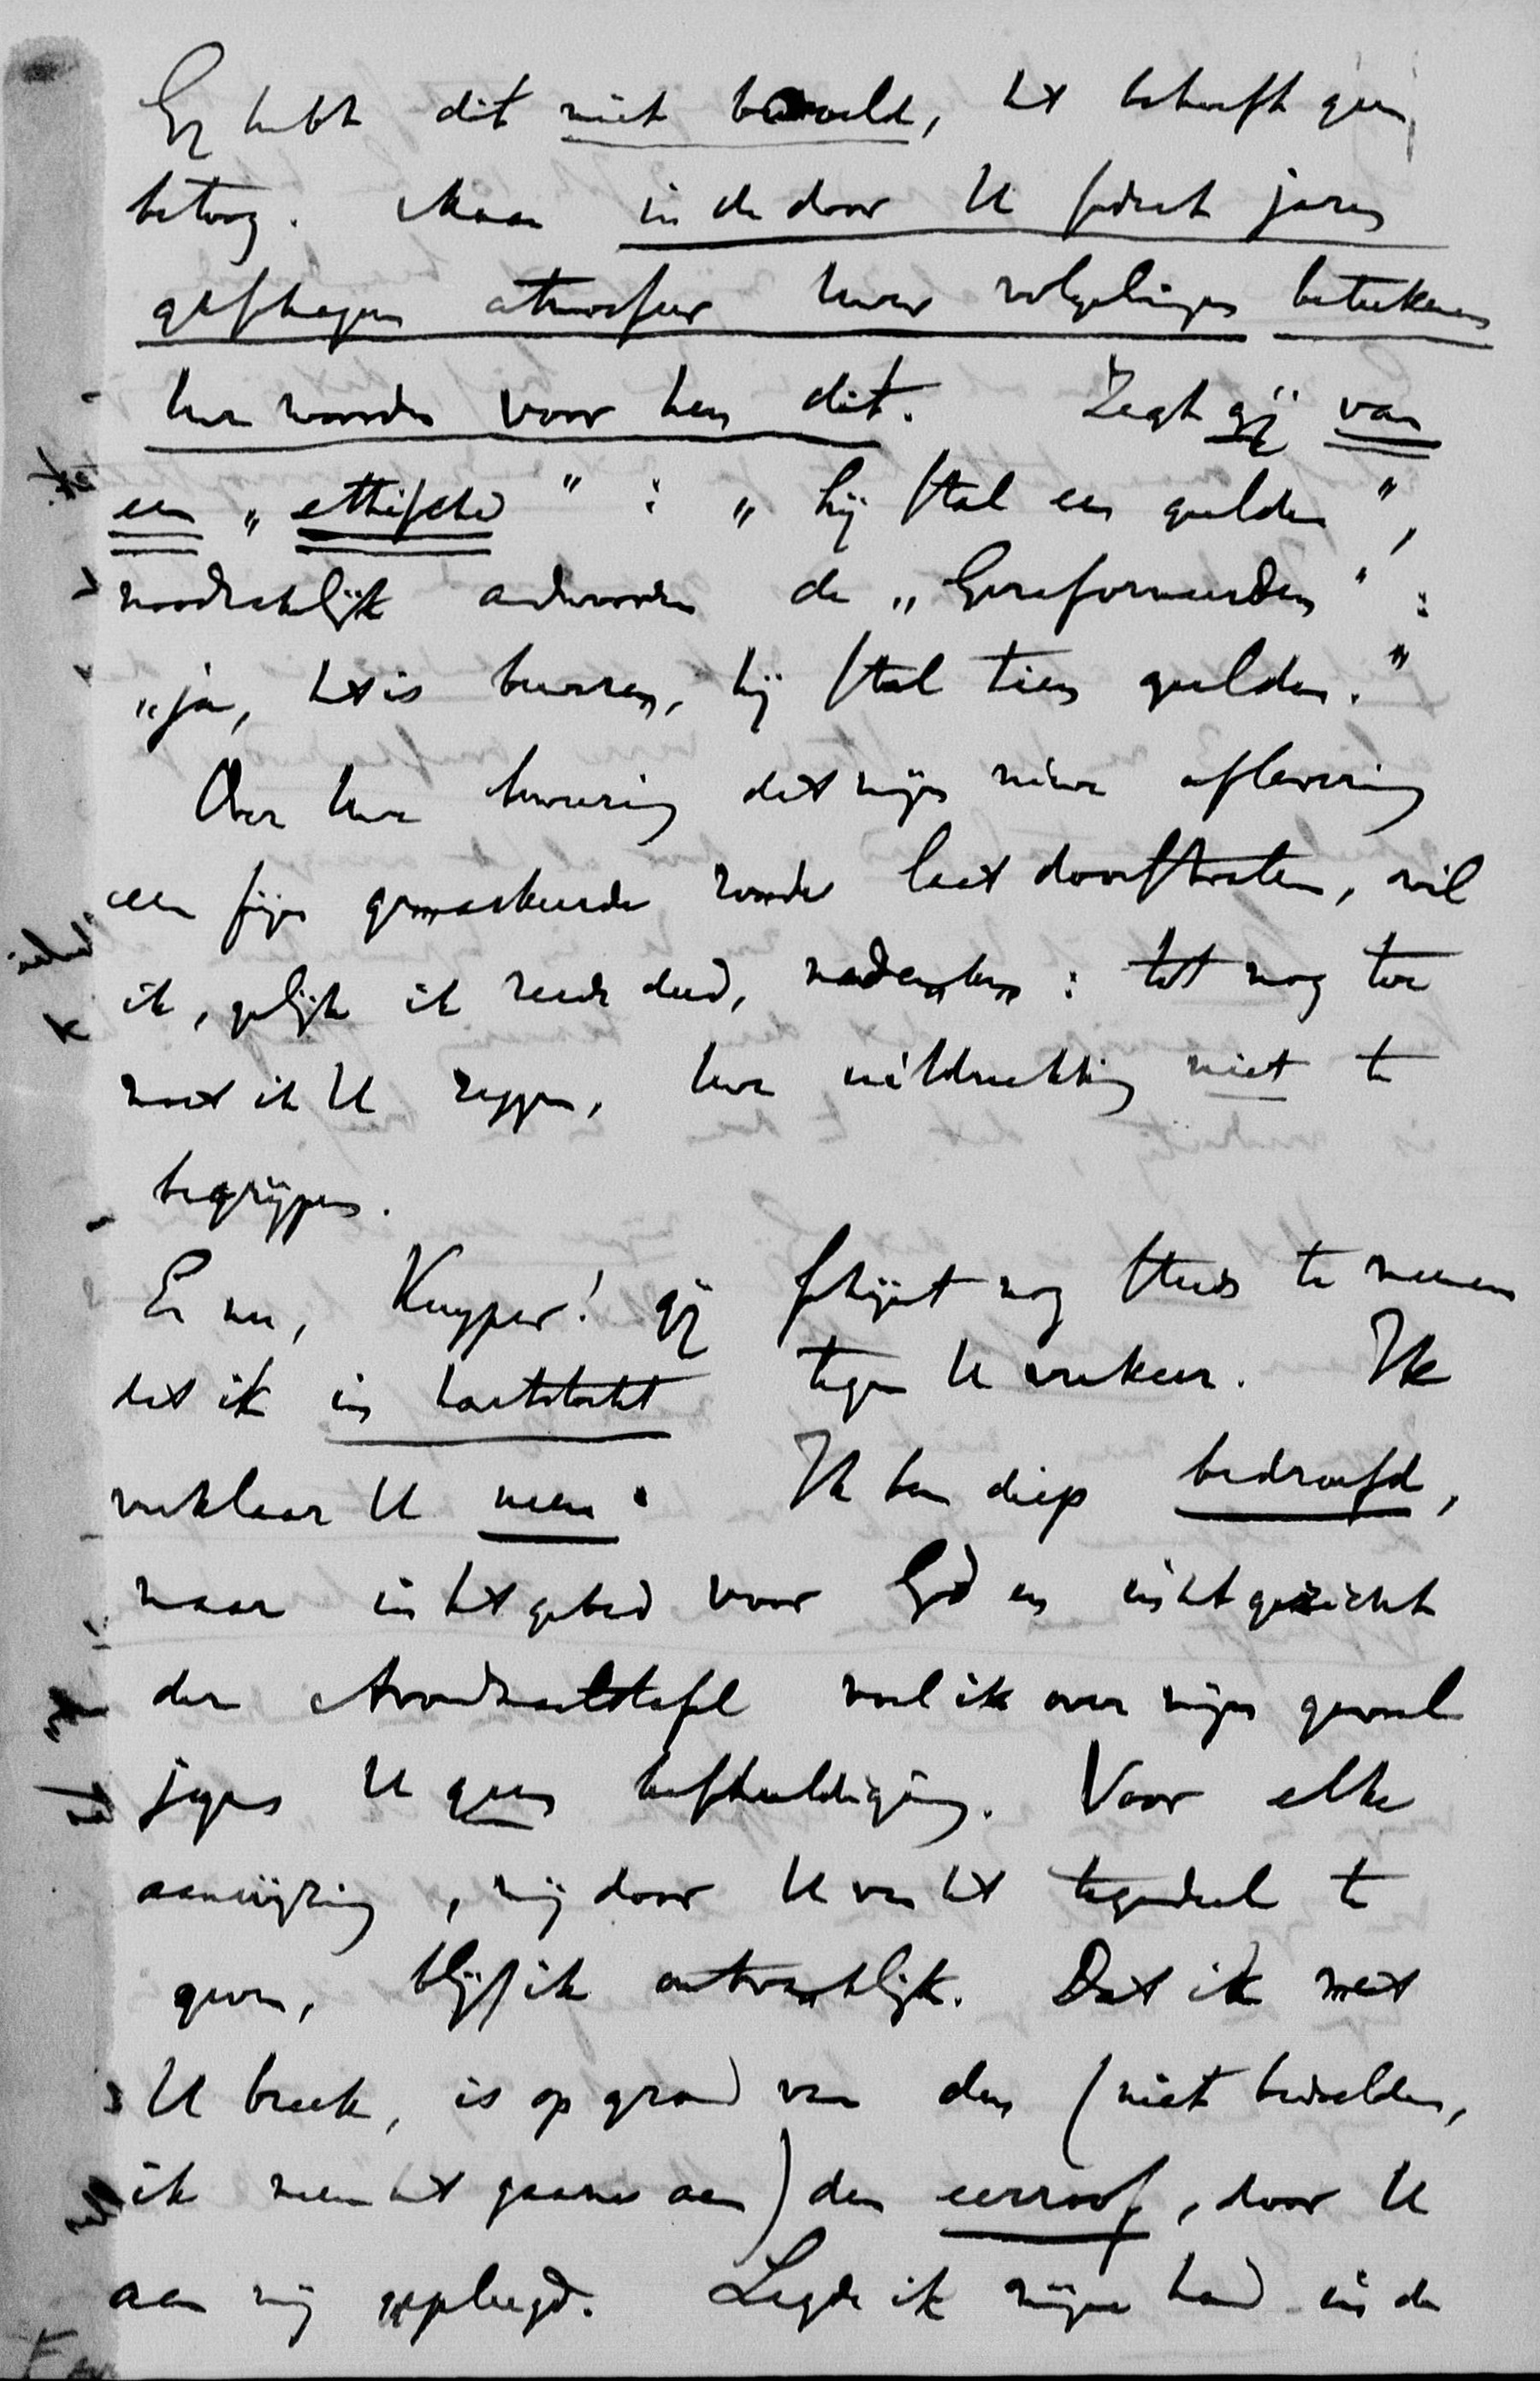 Gij hebt dit niet bedoeld, het behoeft geen
betoog. Maar in de door U sedert jaren
geschapen atmosfeer Uwer volgelingen beteekenen
Uw woorden voor hen dit. Zegt gij van
een „ethische" : „hij stal een gulden",
noodzakelijk antwoorden de „Gereformeerden" :
„ja, het is bewezen, hij stal tien gulden."
Over Uwe bewering dat mijn nieuwe aflevering
een fijn gemaskeerde zonde laat doorstralen, wil
ik, gelijk ik reeds deed, nadenken : tot nog toe
moet ik U zeggen, Uwe uitdrukking niet te
begrijpen.
En nu, Kuyper! gij schijnt nog steeds te meenen
dat ik in hartstocht tegen U verkeer. Ik
verklaar U neen. Ik ben diep bedroefd,
maar in het gebed voor God en in het gezicht
der Avondmaalstafel voel ik over mijn gevoel
jegens U geen beschuldiging. Voor elke
aanwijzing, mij door U van het tegendeel te
geven, blijf ik ontvankelijk. Dat ik met
U breek, is op grond van den (niet bedoelden,
ik neem het gaarne aan) den eerroof, door U
aan mij gepleegd. Legde ik mijne hand in de